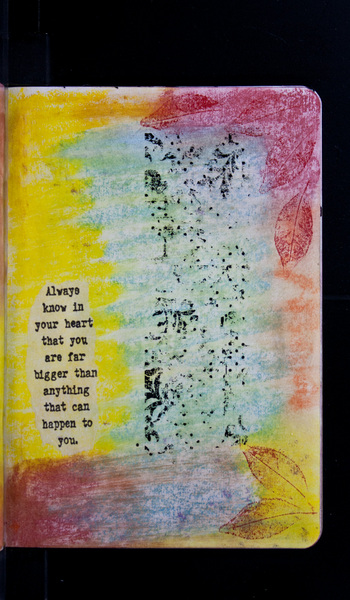 Always
know in
your heart
that you
are far
bigger than
anything
that can
happen to
you.